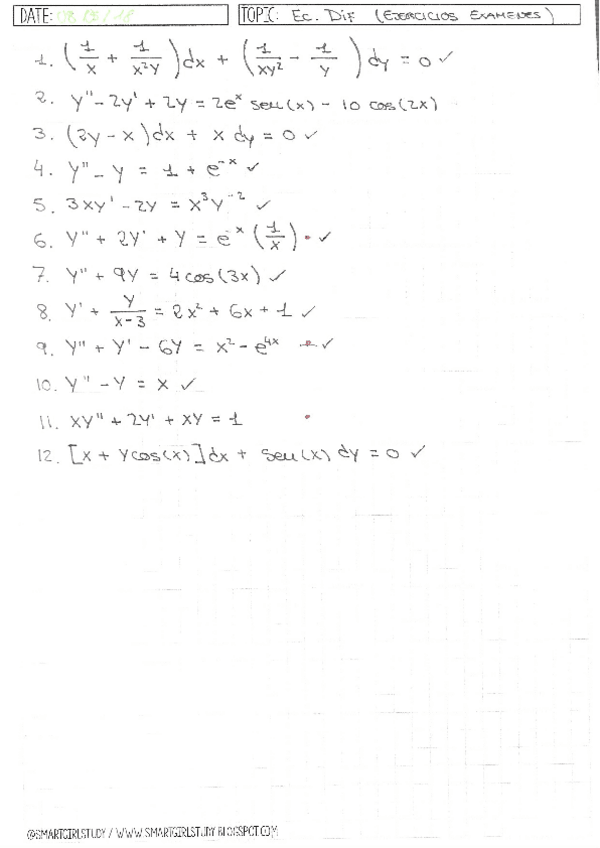 DATE: 08/05/18 TOPIC: Ec. Dif (EJERCICIOS EXAMENES)
1. (1/x + 1/x²y)dx + (1/xy² - 1/y)dy = 0 ✓
2. y'' - 2y' + 2y = 2eˣ sen(x) - 10 cos(2x)
3. (2y - x)dx + x dy = 0 ✓
4. y'' - y = 1 + e⁻ˣ ✓
5. 3xy' - 2y = x³y⁻² ✓
6. y'' + 2y' + y = e⁻ˣ (1/x) • ✓
7. y'' + 9y = 4cos(3x) ✓
8. y' + y/(x-3) = 2x² + 6x + 1 ✓
9. y'' + y' - 6y = x² - e⁴ˣ ✓
10. y'' - y = x ✓
11. xy'' + 2y' + xy = 1 •
12. [x + ycos(x)]dx + sen(x) dy = 0 ✓
@SMARTGIRLSTUDY / WWW.SMARTGIRLSTUDY.BLOGSPOT.COM